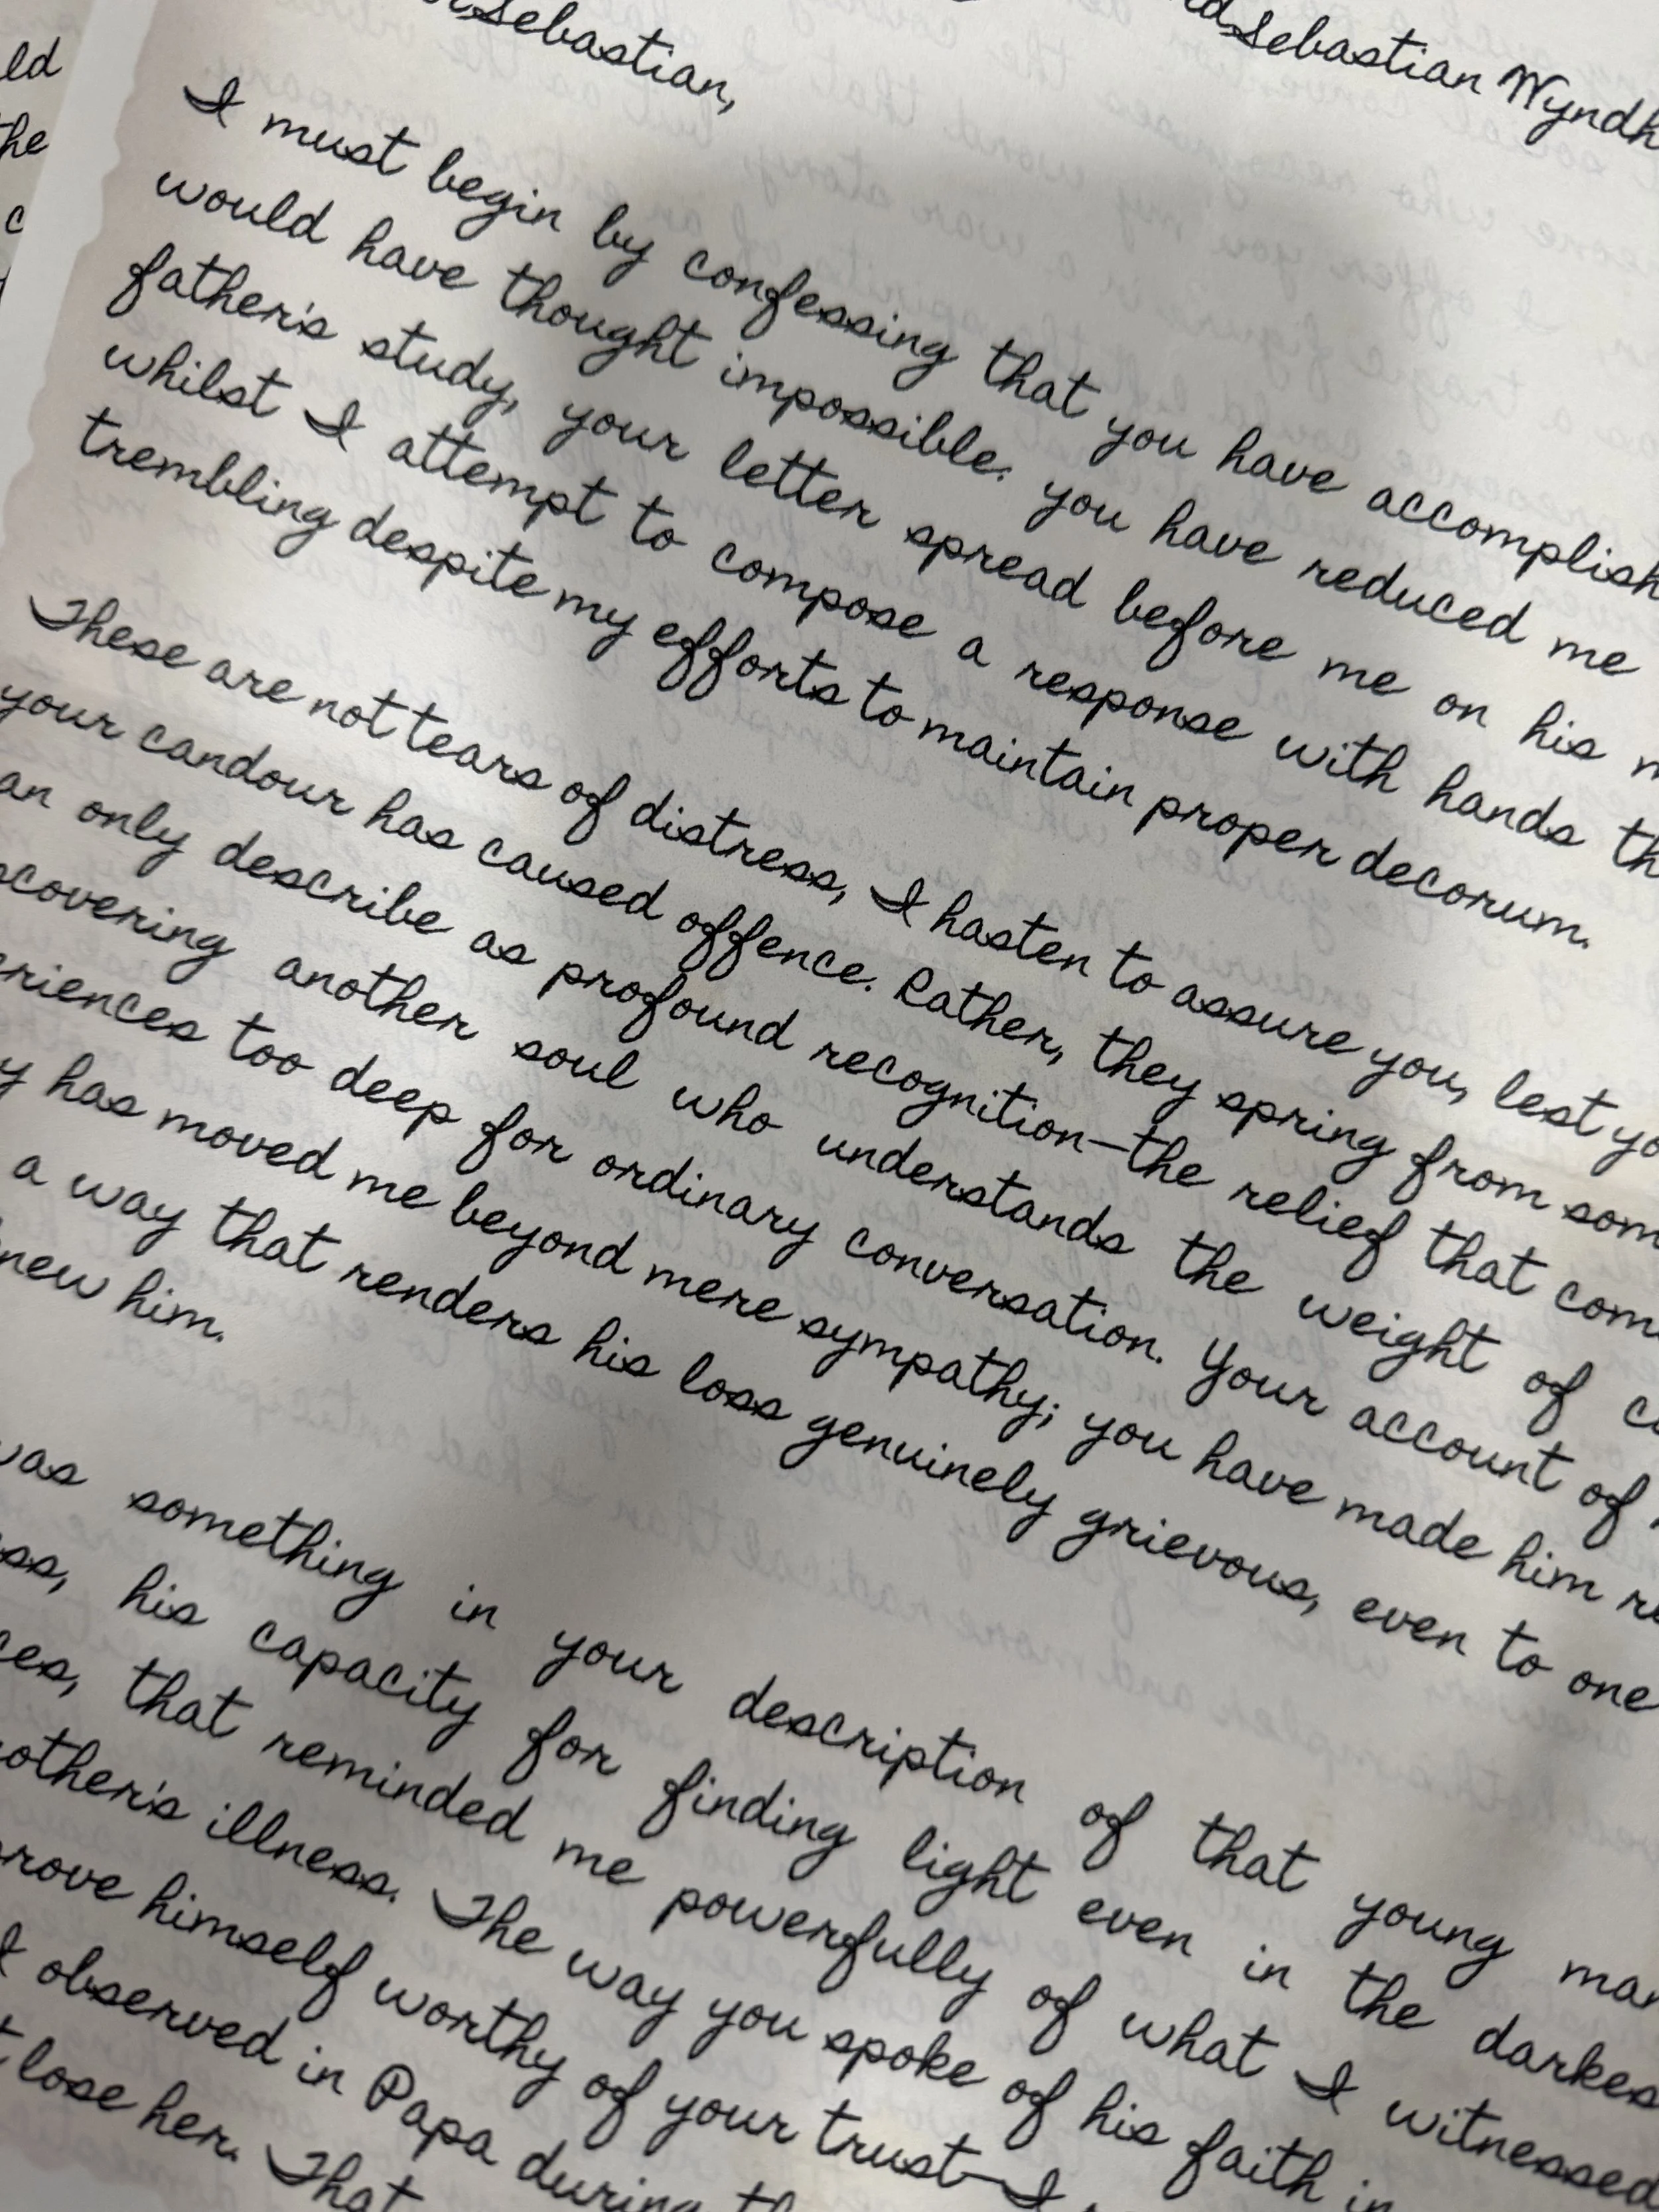 Sebastian Wyndh
Sebastian,
I must begin by confessing that you have accomplish
would have thought impossible: you have reduced me
father's study, your letter spread before me on his
whilst I attempt to compose a response with hands th
trembling despite my efforts to maintain proper decorum.
These are not tears of distress, I hasten to assure you, lest yo
your candour has caused offence. Rather, they spring from som
an only describe as profound recognition—the relief that com
scovering another soul who understands the weight of
eriences too deep for ordinary conversation. Your account of
y has moved me beyond mere sympathy; you have made him re
a way that renders his loss genuinely grievous, even to one
new him.
was something in your description of that young man
ss, his capacity for finding light even in the darkes
ces, that reminded me powerfully of what I witnessed
other's illness. The way you spoke of his faith in
rove himself worthy of your trust—I
I observed in Papa during th
t lose her. That
ld
he
c